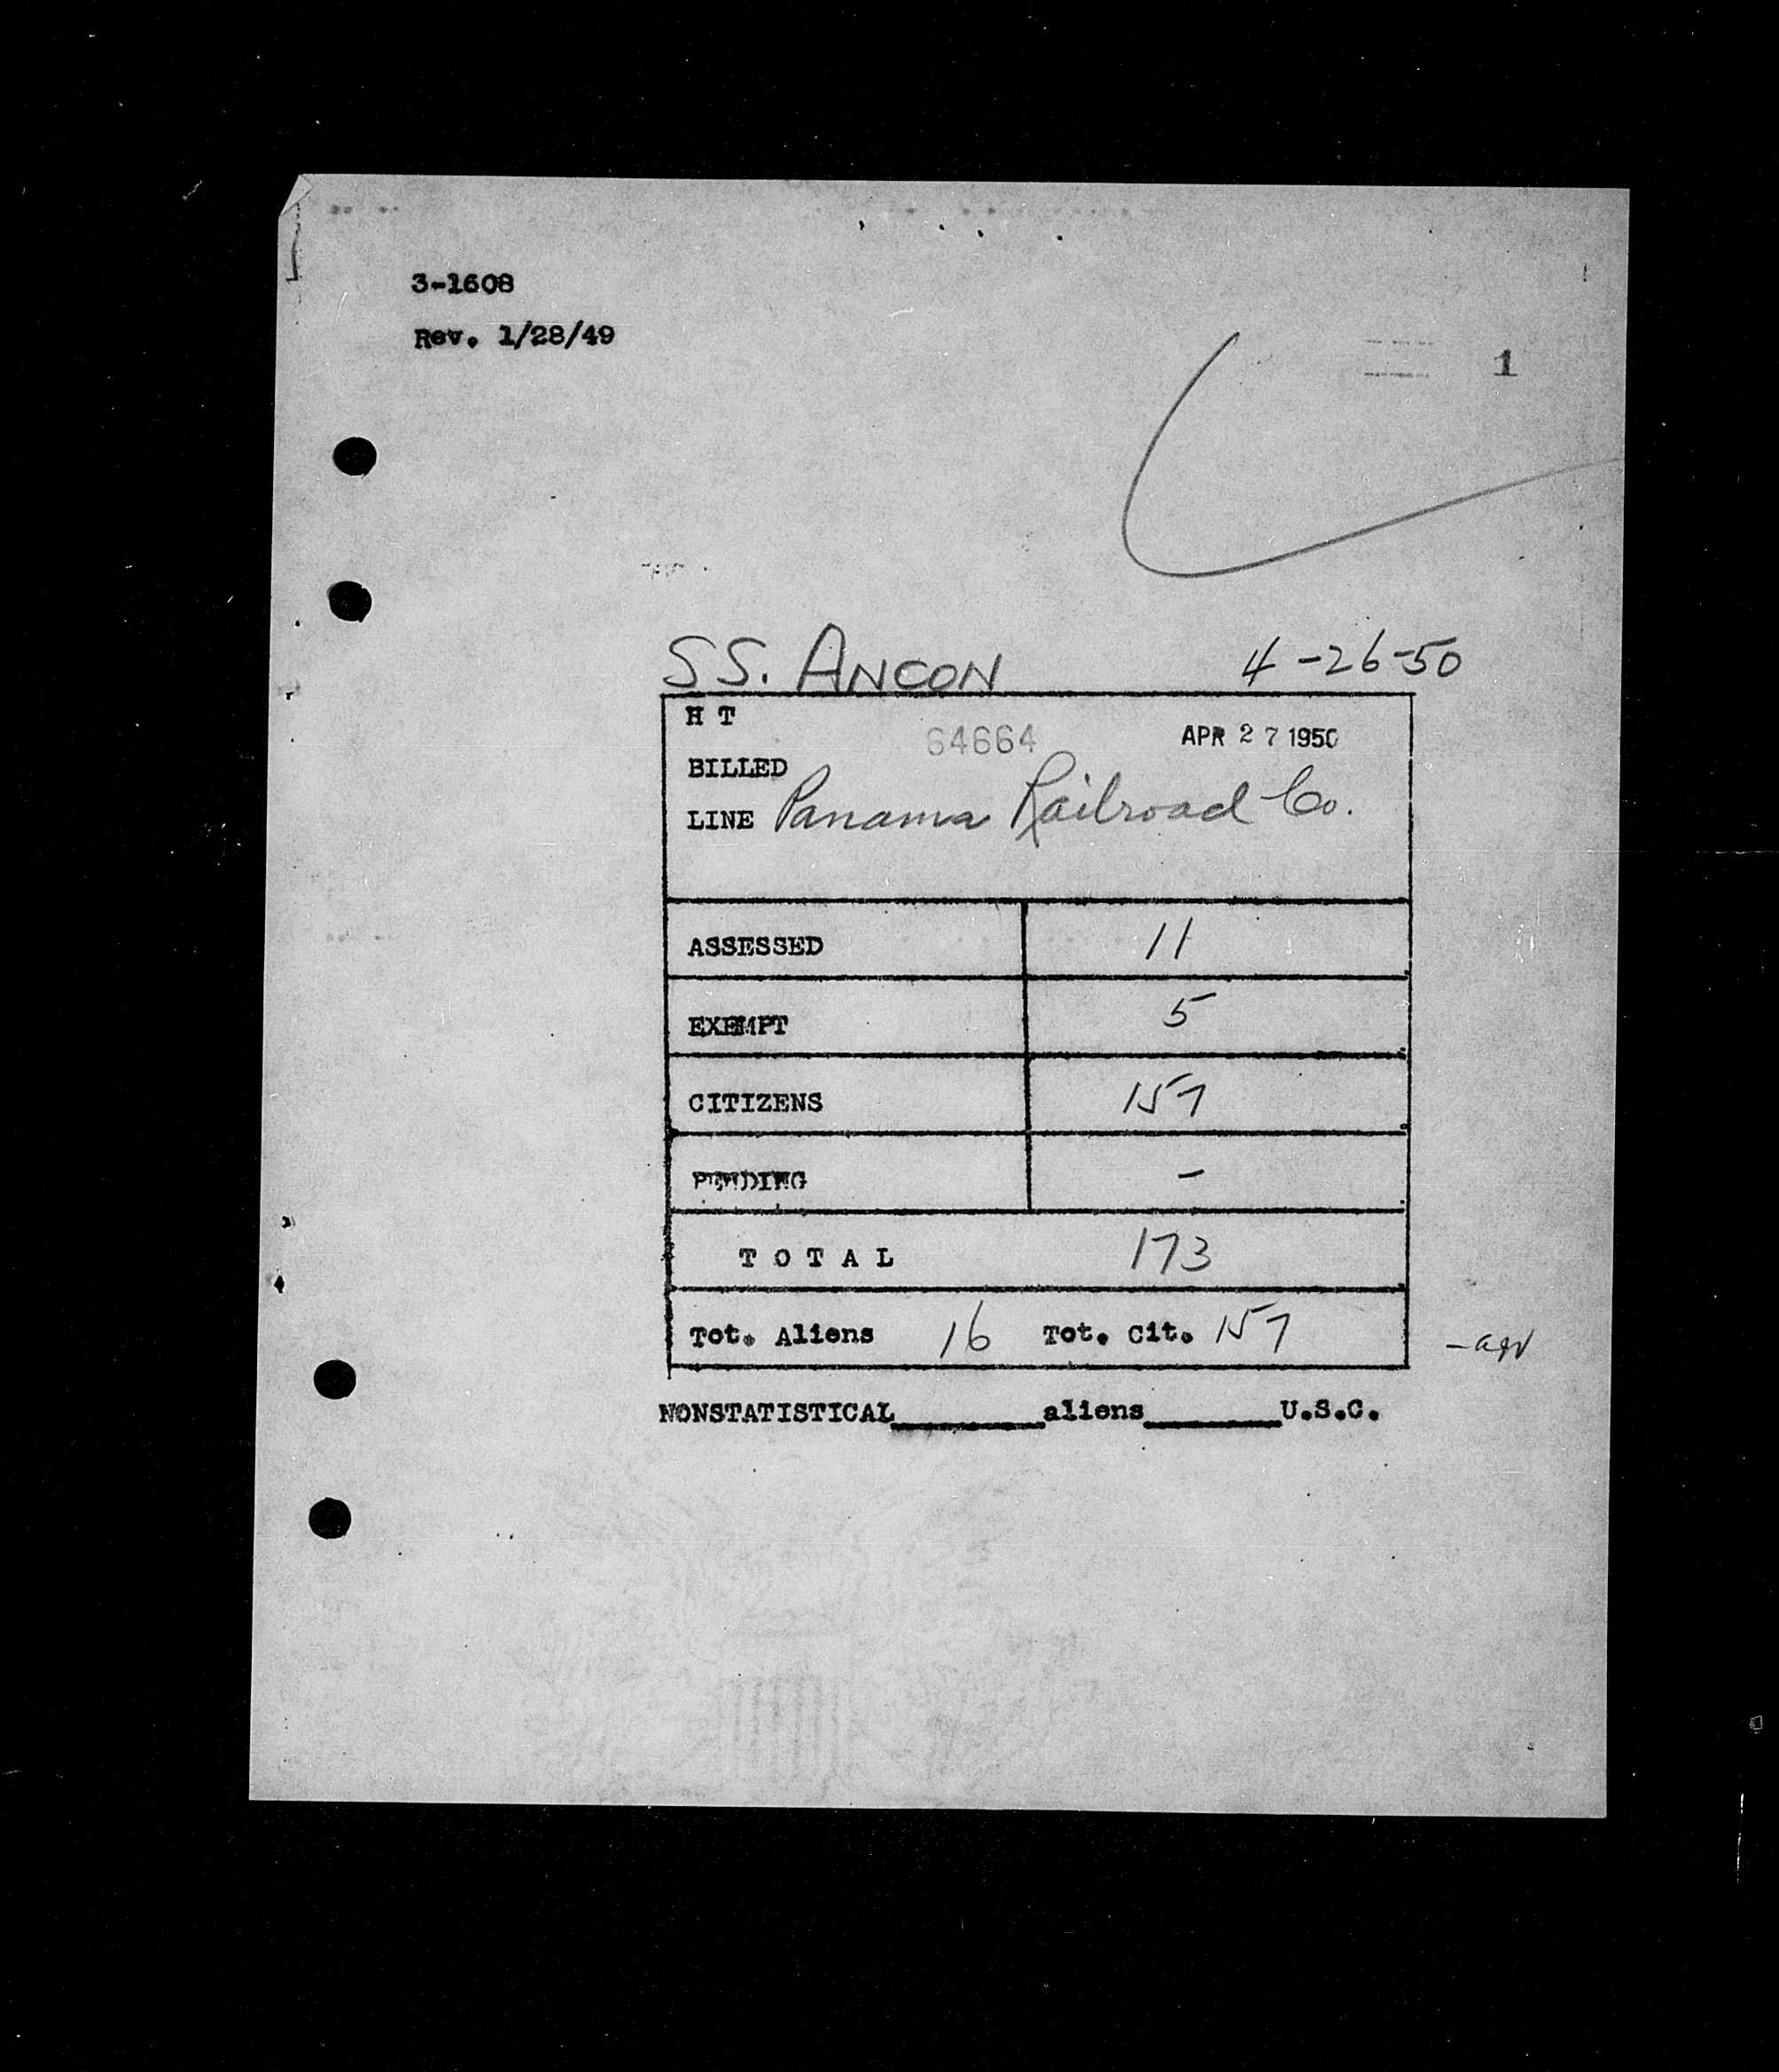 3-1608
Rev. 1/28/49
1
SS. ANCON 4-26-50
H T
64664 APR 27 1950
BILLED
LINE Panama Railroad Co.
ASSESSED 11
EXEMPT 5
CITIZENS 157
PENDING -
TOTAL 173
Tot. Aliens 16 Tot. Cit. 157
NONSTATISTICAL________aliens________U.S.C.